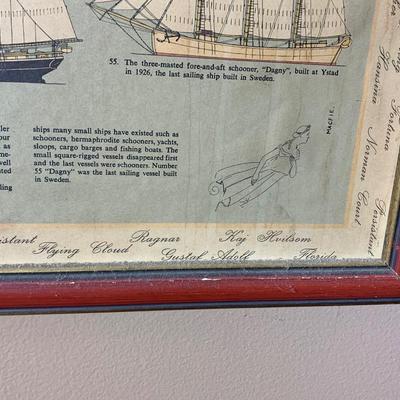 55. The three-masted fore-and-aft schooner, "Dagny", built at Ystad
in 1926, the last sailing ship built in Sweden.
ships many small ships have existed such as
schooners, bermaphrodite schooners, yachts,
sloops, cargo barges and fishing boats. The
small square-rigged vessels disappeared first
and the last vessels were schooners. Number
55 "Dagny" was the last sailing vessel built
in Sweden.
MACFIE.
Ragnar Kaj Hvilsom
Flying Cloud Gustaf Adolf Florida
Fortuna
Norman Court
Persistant